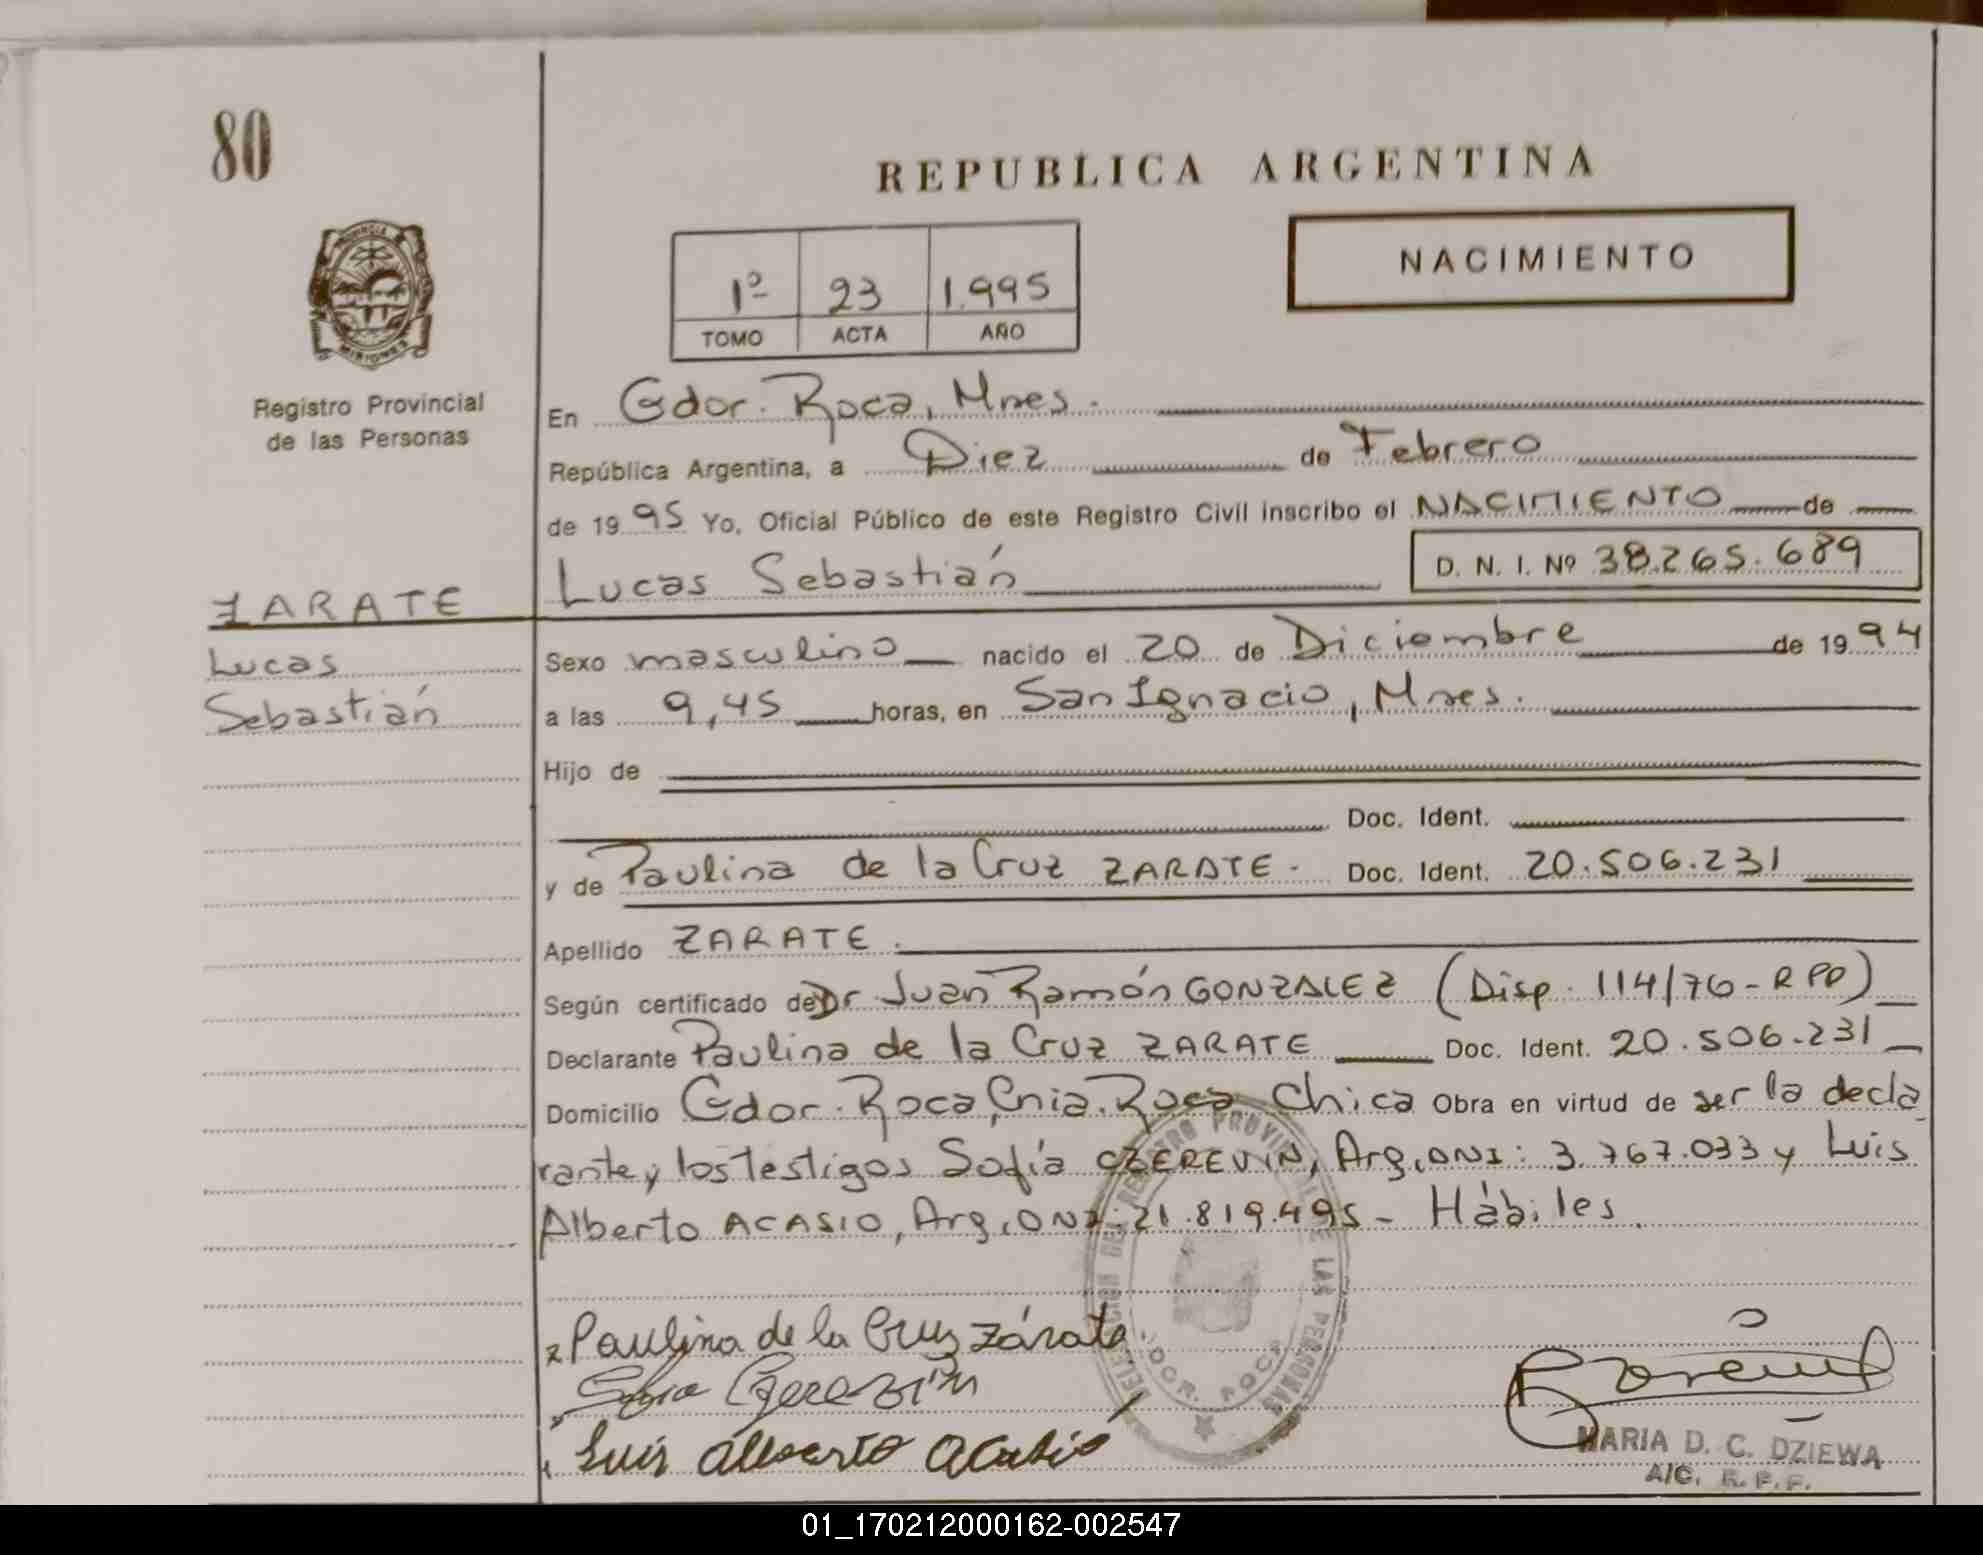 80
REPUBLICA ARGENTINA
NACIMIENTO
1º 23 1.995
TOMO ACTA AÑO
PROVINCIA
MISIONES
Registro Provincial
de las Personas
En Gdor. Roca, Mnes.
República Argentina, a Diez de Febrero
de 1995 Yo, Oficial Público de este Registro Civil inscribo el NACIMIENTO de
Lucas Sebastián D. N. I. Nº 38.265.689
ZARATE
Lucas
Sebastián
Sexo masculino nacido el 20 de Diciembre de 1994
a las 9,45 horas, en San Ignacio, Mnes.
Hijo de
Doc. Ident.
y de Paulina de la Cruz ZARATE. Doc. Ident. 20.506.231
Apellido ZARATE.
Según certificado de Dr Juan Ramón GONZALEZ (Disp. 114/76-RPP)
Declarante Paulina de la Cruz ZARATE Doc. Ident. 20.506.231
Domicilio Gdor. Roca, Cnia. Roca Chica Obra en virtud de ser la decla
rante y los testigos Sofía CZEREVIN, Arg, DNI: 3.767.033 y Luis
Alberto ACASIO, Arg, DNI: 21.819.495 - Hábiles.
DELEGACION DEL REGISTRO PROVINCIAL DE LAS PERSONAS
GDOR. ROCA
Paulina de la Cruz Zárate
Sofia Czerevin
Luis Alberto Acasio
MARIA D. C. DZIEWA
A/C. R. P. P.
01_170212000162-002547